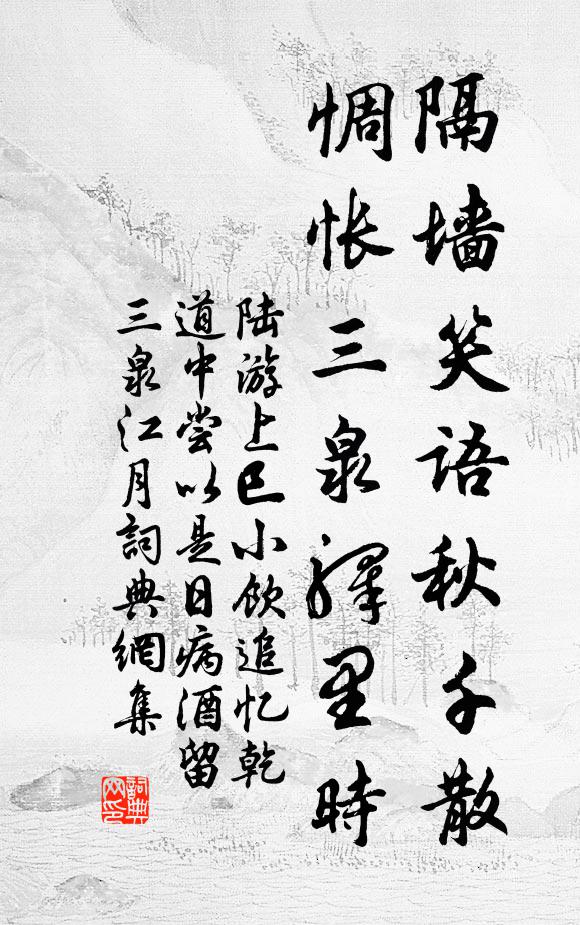 隔墙笑语秋千散
惆怅三泉驿里時
陆游上巳小飲追忆乾
道中尝以是日病酒留
三泉江月詞典網集
詞典
网印